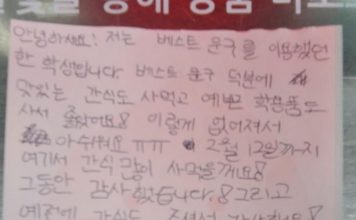 안녕하세요! 저는 베스트 문구를 이용했던
한 학생입니다. 베스트 문구 덕분에
맛있는 간식도 사먹고 예쁜 학용품도
사서 좋았어요! 이렇게 없어져서
아쉬워요 ㅠㅠ 2월 12일까지
여기서 간식 많이 사먹을게요!
그동안 감사했습니다! 그리고
예전에 간식도